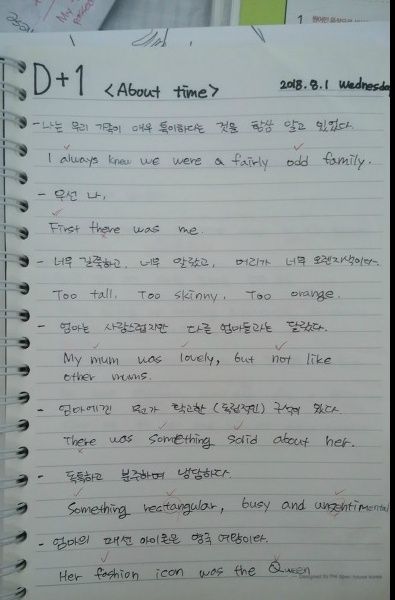 D+1 <About time> 2018.8.1 Wednesday
- 나는 우리 가족이 매우 특이하다는 것을 항상 알고 있었다.
I always knew we were a fairly odd family.
- 우선 나,
First there was me.
- 너무 길쭉하고, 너무 말랐고, 머리가 너무 오렌지색이다.
Too tall. Too skinny. Too orange.
- 엄마는 사랑스럽지만 다른 엄마들과는 달랐다.
My mum was lovely, but not like
other mums.
- 엄마에겐 뭔가 탁고한 (독립적인) 구석이 있다.
There was something solid about her.
- 독특하고 분주하며 냉담하다.
Something rectangular, busy and unsentimental
- 엄마의 패션 아이콘은 영국 여왕이다.
Her fashion icon was the Queen